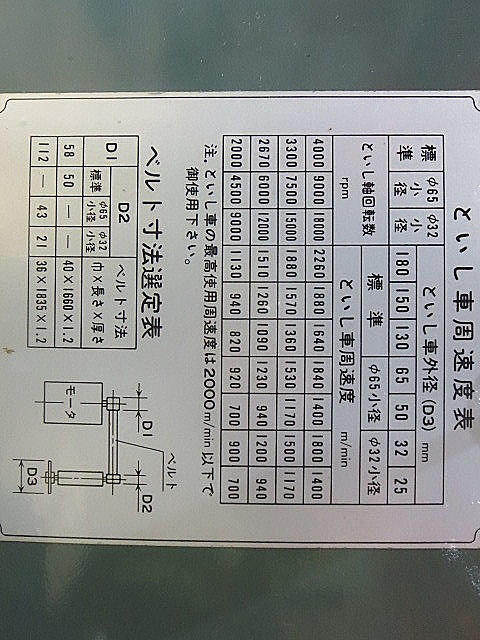 といし車周速度表
標準 φ65小径 φ32小径 といし車外径(D3) mm
180 150 130 65 50 32 25
といし軸回転数 rpm といし車周速度 m/min
標準 φ65小径 φ32小径
4000 9000 18000 2260 1880 1640 1840 1400 1800 1400
3300 7500 15000 1880 1570 1360 1530 1170 1500 1170
2670 6000 12000 1510 1260 1090 1230 940 1200 940
2000 4500 9000 1130 940 820 920 700 900 700
注．といし車の最高使用周速度は2000m/min 以下で
御使用下さい。
ベルト寸法選定表
D1 D2 ベルト寸法
標準 φ65小径 φ32小径 巾×長さ×厚さ
58 50 － － 40×1660×1.2
112 － 43 21 36×1835×1.2
モータ
D1
ベルト
D2
D3